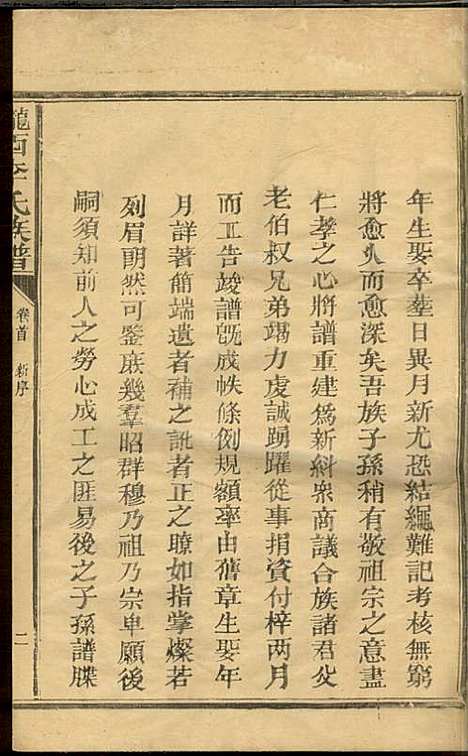 年生娶卒塟日異月新尤恐結繩難記考核無窮
將愈久而愈深矣吾族子孫稍有敬祖宗之意盡
仁孝之心將譜重建爲新斜衆商議合族諸君父
老伯叔兄弟竭力虔誠踴躍從事捐資付梓两月
而工告竣譜旣成帙條例規額率由舊章生娶年
月詳著簡端遺者補之訛者正之瞭如指掌燦若
列眉朗然可鑒庶幾羣昭群穆乃祖乃宗卑願後
嗣須知前人之勞心成工之匪易後之子孫譜牒
隴西李氏族譜
卷首
新序
二